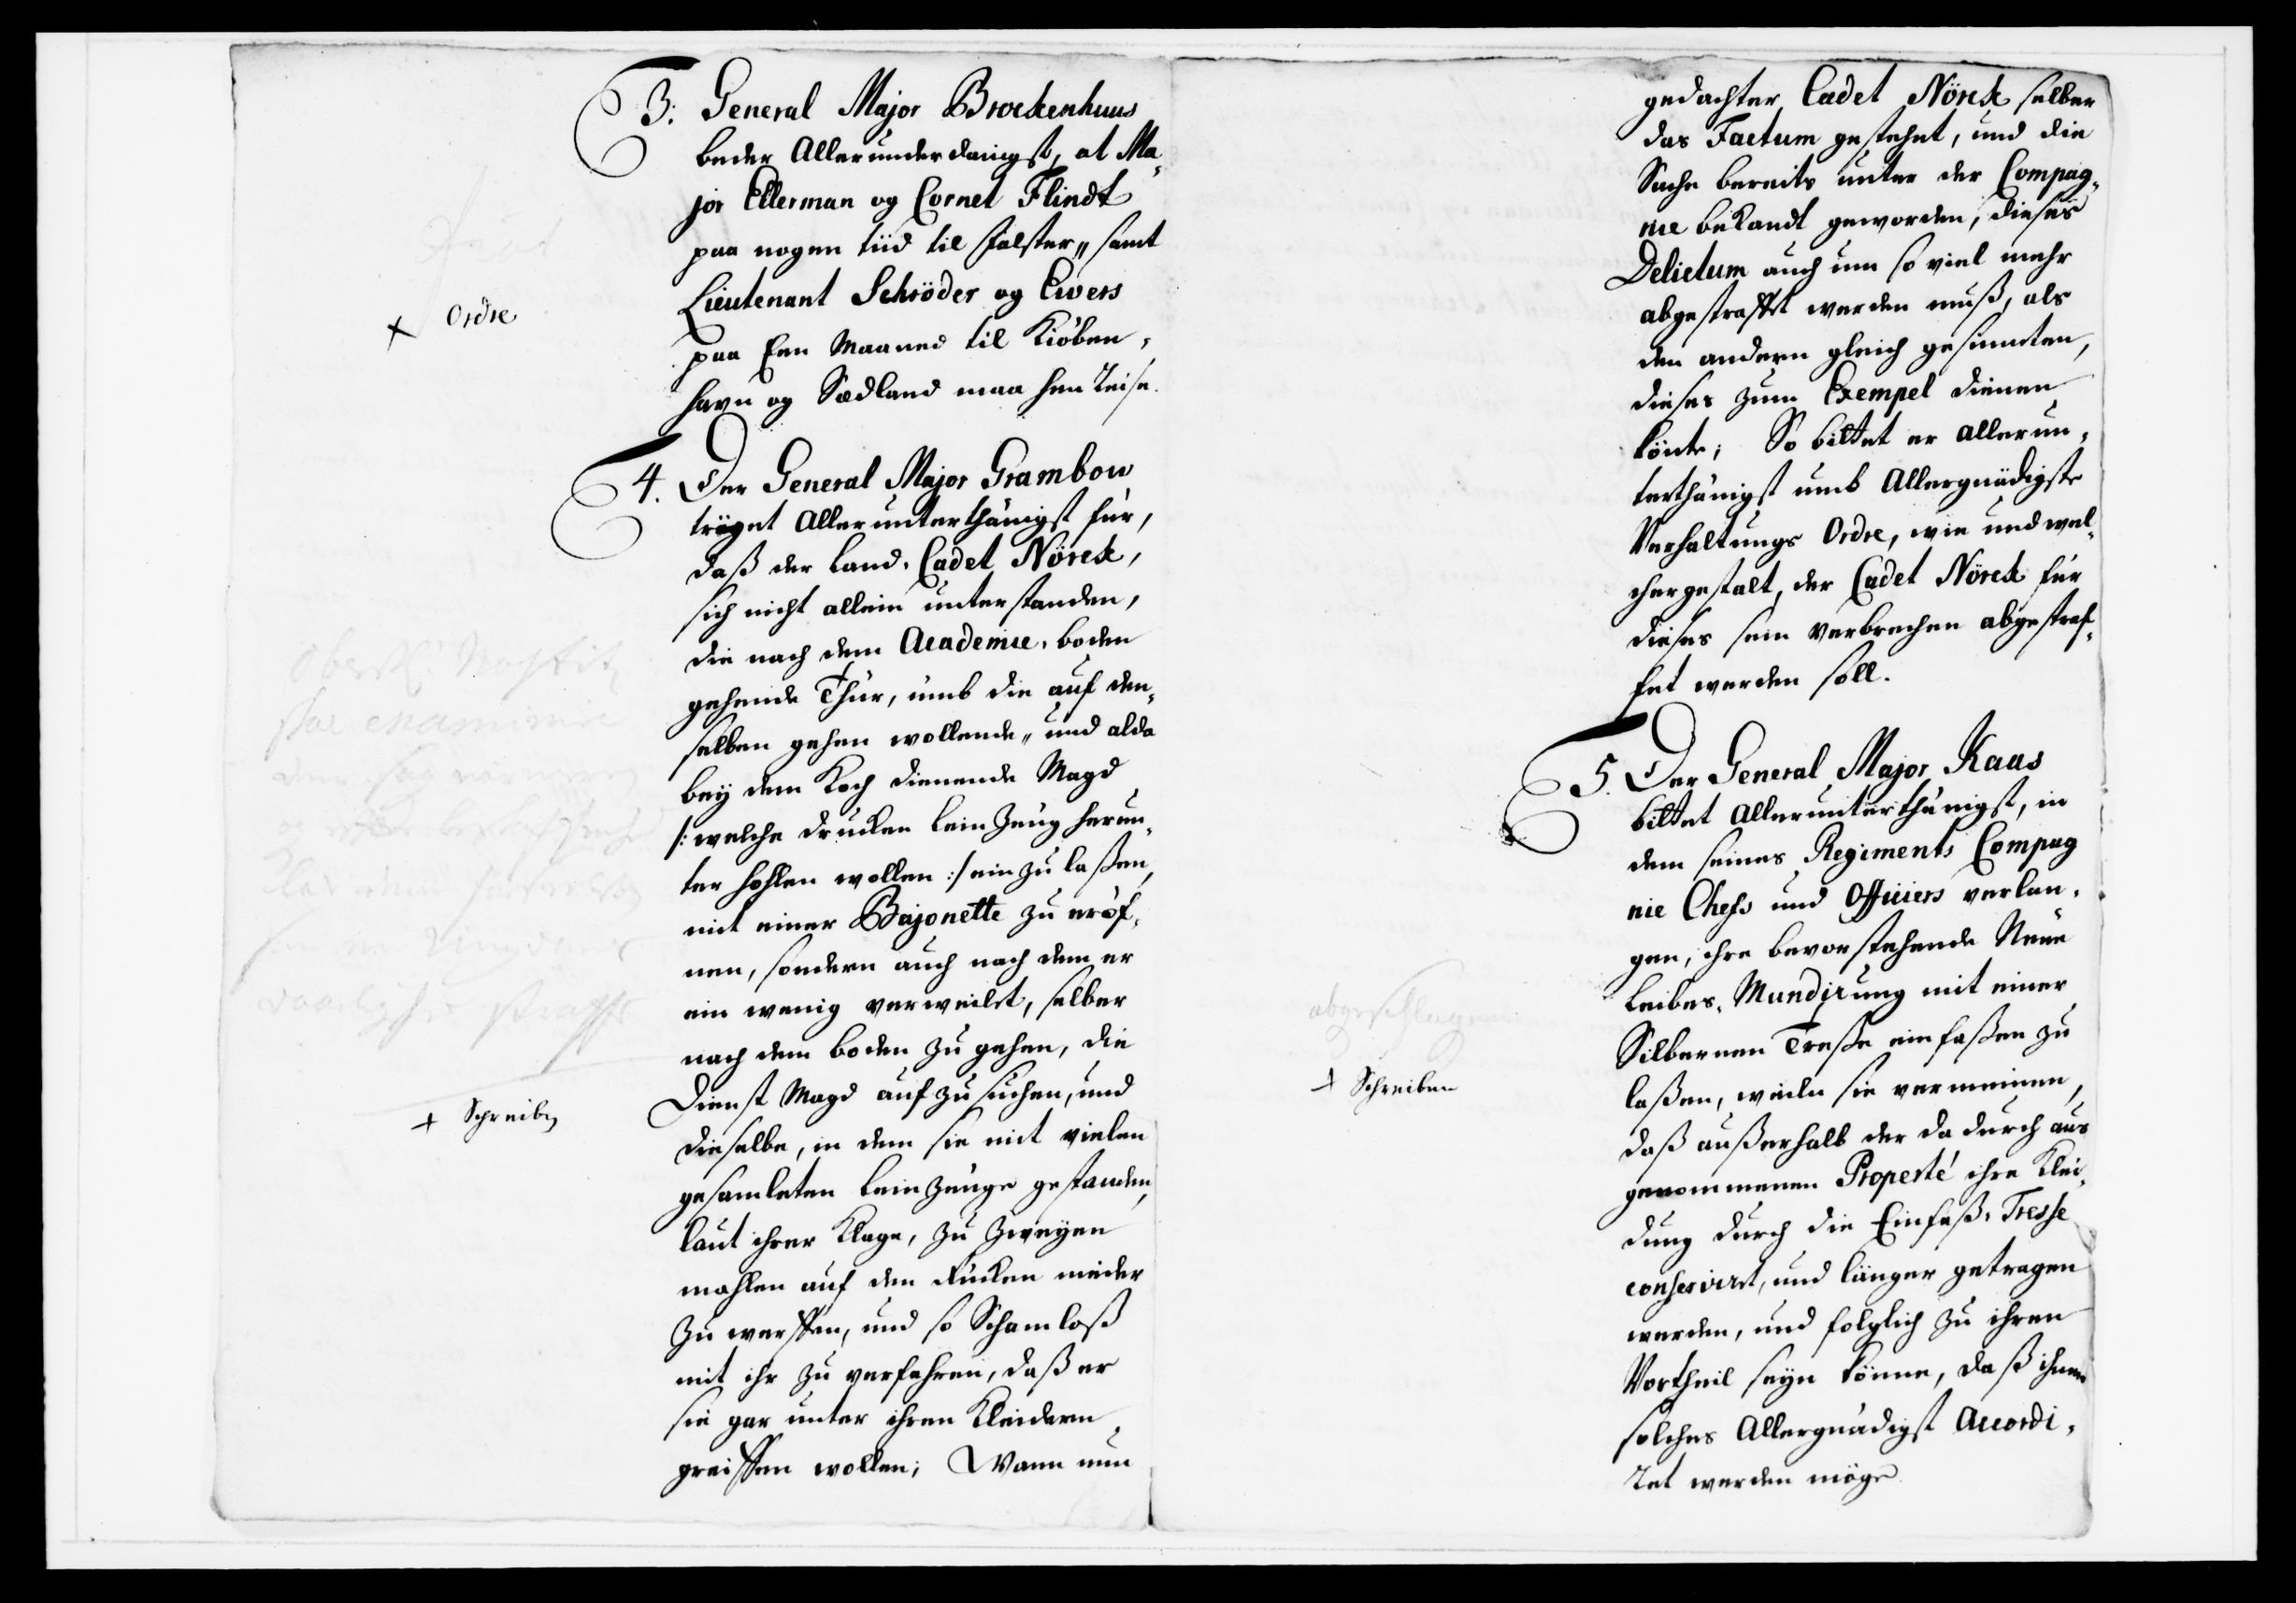 3. General Major Brockenhuus
beder Allerunderdanigst, at Ma-
jor Ellerman og Cornet Flindt
paa nogen tiid til Falster, samt
Lieutenant Schröder og Ewers
paa Een Maaned til Kiöben-
havn og Sædland maa hen Reise.
+ Ordre
4. Der General Major Grambow
träget Allerunterthänigst für,
daß der Land-Cadet Nörck,
sich nicht allein unterstanden,
die nach dem Academie-boden
gehende Thür, umb die auf den-
selben gehen wollende, und alda
bey dem Koch dienende Magd
/: welche drucken leinzeug herun-
ter hohlen wollen :/ ein zu laßen,
mit einer Bajonette zu eröf-
nen, sondern auch nach dem er
ein wenig verweilet, selber
nach dem boden zu gehen, die
Dienst Magd auf zu suchen, und
dieselbe, in dem sie mit vielen
gesamleten leinzeuge gestanden,
laut ihrer Klage, zu zweyen
mahlen auf den Rücken nieder
zu werffen, und so Schamloß
mit ihr zu verfahren, daß er
sie gar unter ihren Kleidern
greiffen wollen; Wann nun
Oberst
skal examinere
+ Schreiben
gedachter Cadet Nörck selber
das Factum gestehet, und die
Sache bereits unter der Compag-
nie bekandt geworden, dieses
Delictum auch um so viel mehr
abgestraffet werden muß, als
den andern gleich gesinneten,
dieses zum Exempel dienen
könte; So bittet er allerun-
terthänigst umb Allergnädigste
Verhaltungs Ordre, wie und wel-
chergestalt, der Cadet Nörck für
dieses sein verbrechen abgestraf-
fet werden soll.
5. Der General Major Kaas
bittet Allerunterthänigst, in
dem seines Regiments Compag
nie Chefs und Officiers verlan-
gen, ihre bevorstehende Neue
Leibes-Mundirung mit einer
Silbernen Treße einfaßen zu
laßen, weiln sie vermeinen,
daß außerhalb der dadurch aus
genommenen Properté ihre Klei-
dung durch die Einfaß-Tresse
conserviret, und länger getragen
werden, und folglich zu ihren
Vortheil seyn könne, daß ihnen
solches Allergnädigst Accordi-
ret werden möge
abgeschlagen
+ Schreiben